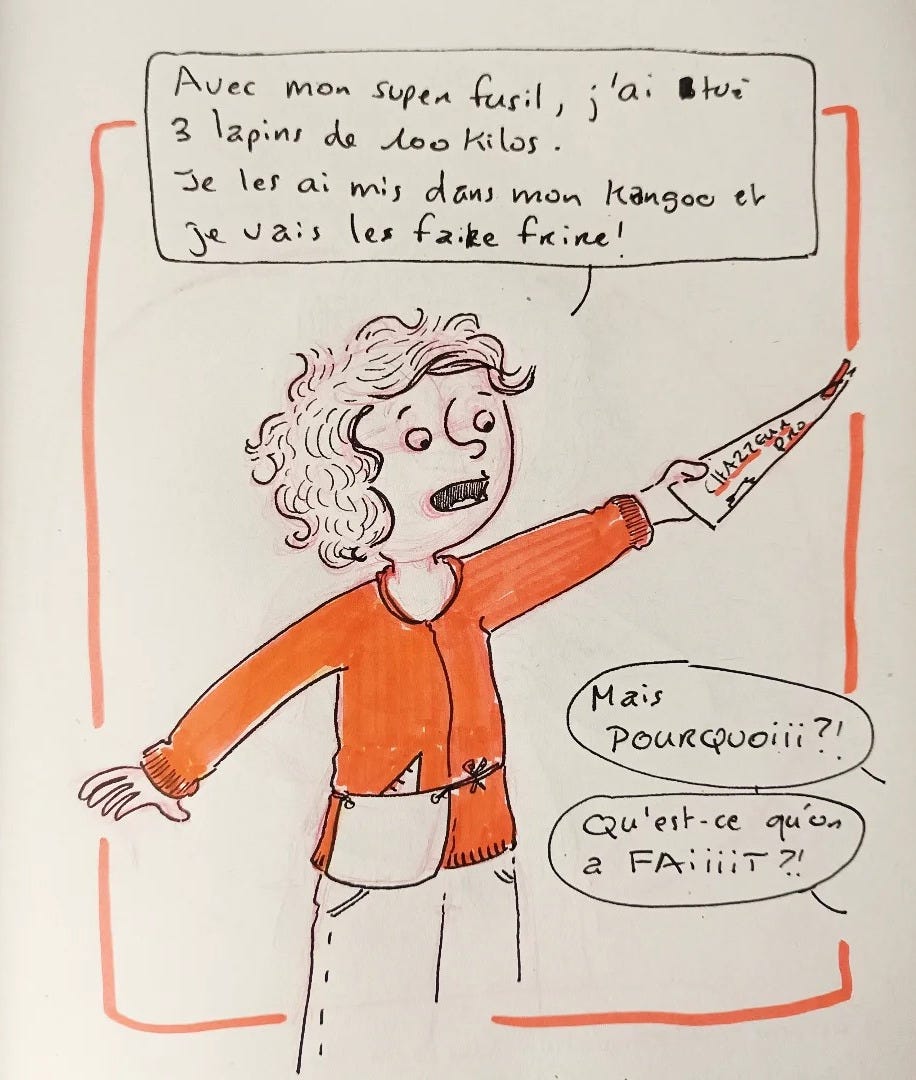 Avec mon super fusil, j'ai tué
3 lapins de 100 kilos.
Je les ai mis dans mon kangoo et
je vais les faire frire!
CHAZZEUR
PRO
Mais
POURQUOiii?!
Qu'est-ce qu'on
a FAiiiiT?!